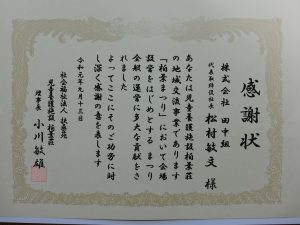 感謝状
株式会社 田中組
代表取締役社長 松村敏文 様
あなたは児童養護施設柏葉荘
の地域交流事業であります
「柏葉まつり」において会場
設営をはじめとする まつり
全般の運営に多大な貢献をさ
れました
よってここにそのご功労に対
し深く感謝の意を表します
令和元年九月十三日
社会福祉法人 扶桑苑
児童養護施設 柏葉荘
理事長 小川敏雄